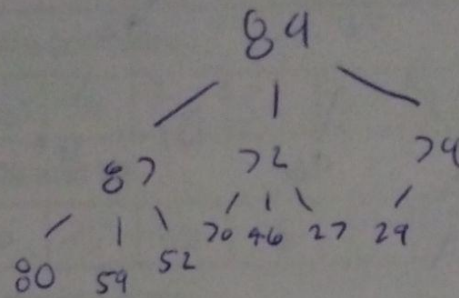 89
87 72 79
80 59 52 70 46 27 29